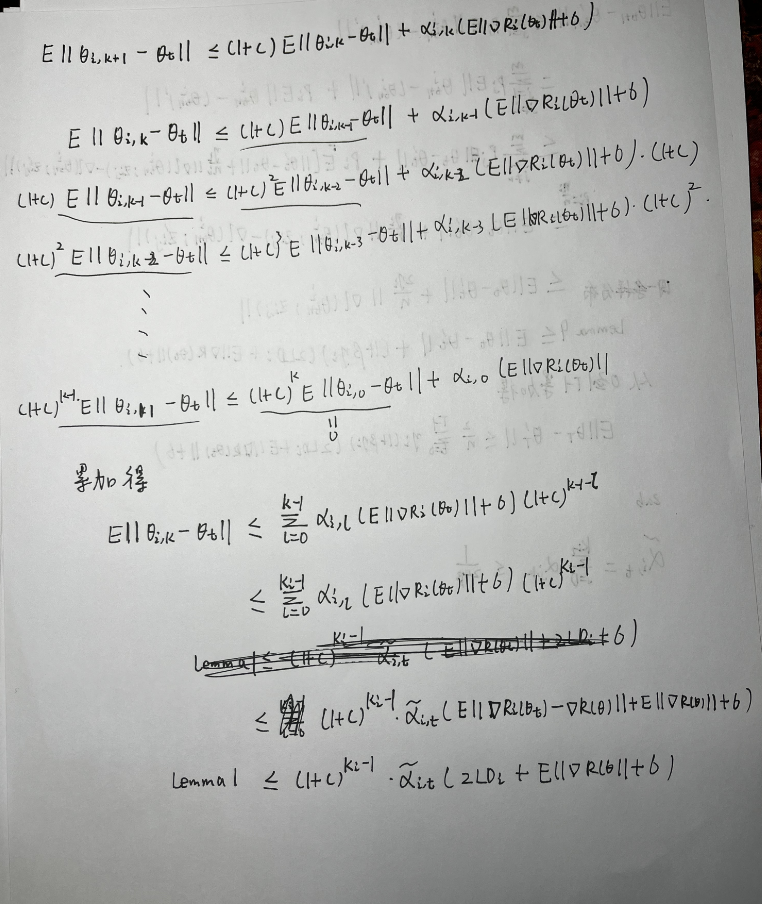 E||θ_{i,k+1} − θ_t|| ≤ (1+c) E||θ_{i,k} − θ_t|| + α_{i,k} (E||∇R_i(θ_t)||+6)
E||θ_{i,k} − θ_t|| ≤ (1+c) E||θ_{i,k-1} − θ_t|| + α_{i,k-1} (E||∇R_i(θ_t)||+6)
(1+c) E||θ_{i,k-1} − θ_t|| ≤ (1+c)^2 E||θ_{i,k-2} − θ_t|| + α_{i,k-2} (E||∇R_i(θ_t)||+6)·(1+c)
(1+c)^2 E||θ_{i,k-2} − θ_t|| ≤ (1+c)^3 E||θ_{i,k-3} − θ_t|| + α_{i,k-3} (E||∇R_i(θ_t)||+6)·(1+c)^2.
(1+c)^{k-1} E||θ_{i,1} − θ_t|| ≤ (1+c)^k E||θ_{i,0} − θ_t|| + α_{i,0} (E||∇R_i(θ_t)||
=
0
累加得
E||θ_{i,k} − θ_t|| ≤ Σ_{l=0}^{k-1} α_{i,l} (E||∇R_i(θ_t)||+6) (1+c)^{k-1-l}
≤ Σ_{l=0}^{K_i-1} α_{i,l} (E||∇R_i(θ_t)||+6) (1+c)^{K_i-1}
≤ (1+c)^{K_i-1} · α̃_{i,t} (E||∇R_i(θ_t) − ∇R(θ)|| + E||∇R(θ)||+6)
Lemma 1 ≤ (1+c)^{K_i-1} · α̃_{i,t} (2LD_i + E||∇R(θ)||+6)